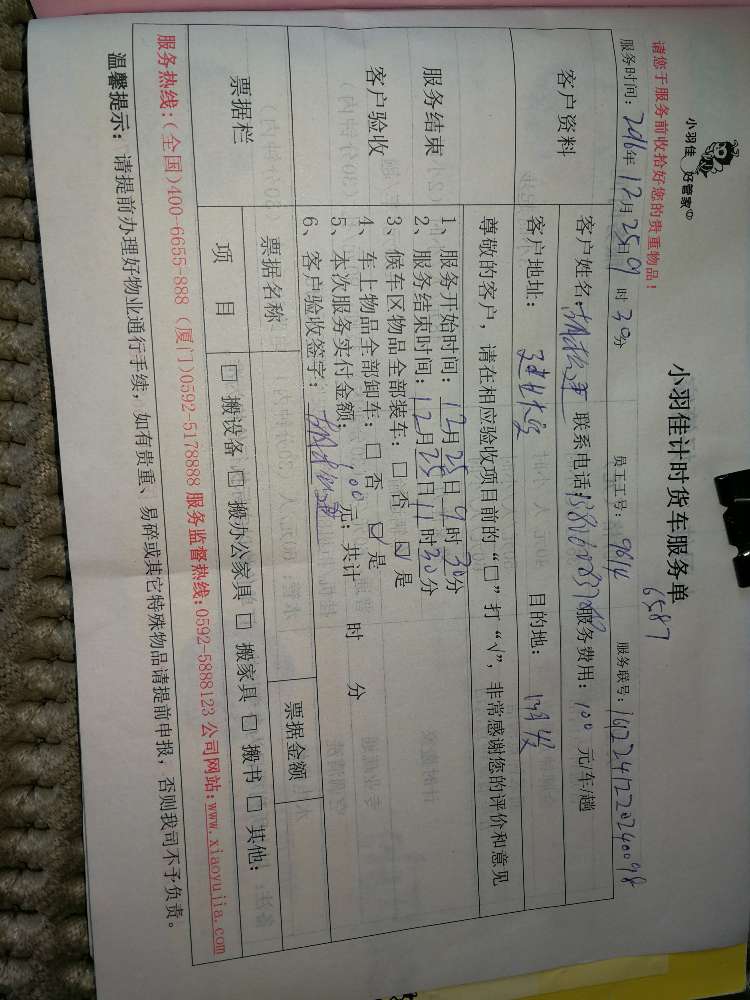 小羽佳 好管家
小羽佳计时货车服务单
6587
请您于服务前收拾好您的贵重物品！
服务时间：2016年12月25日9时30分 员工工号：9614 服务联号：
客户资料
客户姓名： 联系电话： 服务费用：100元/车/趟
客户地址： 目的地：
尊敬的客户，请在相应验收项目前的“□”打“√”，非常感谢您的评价和意见
服务结束
客户验收
1、服务开始时间：12月25日9时30分
2、服务结束时间：12月25日11时30分
3、候车区物品全部装车：□ 否 ☑ 是
4、车上物品全部卸车：□ 否 ☑ 是
5、本次服务实付金额：100元；共计 时 分
6、客户验收签字：
票据栏
票据名称 票据金额
项目 □ 搬设备 □ 搬办公家具 □ 搬家具 □ 搬书 □ 其他：
服务热线：(全国)400-6655-888 (厦门)0592-5178888 服务监督热线：0592-5888123 公司网站：www.xiaoyujia.com
温馨提示：请提前办理好物业通行手续，如有贵重、易碎或其它特殊物品请提前申报，否则我司不予负责。